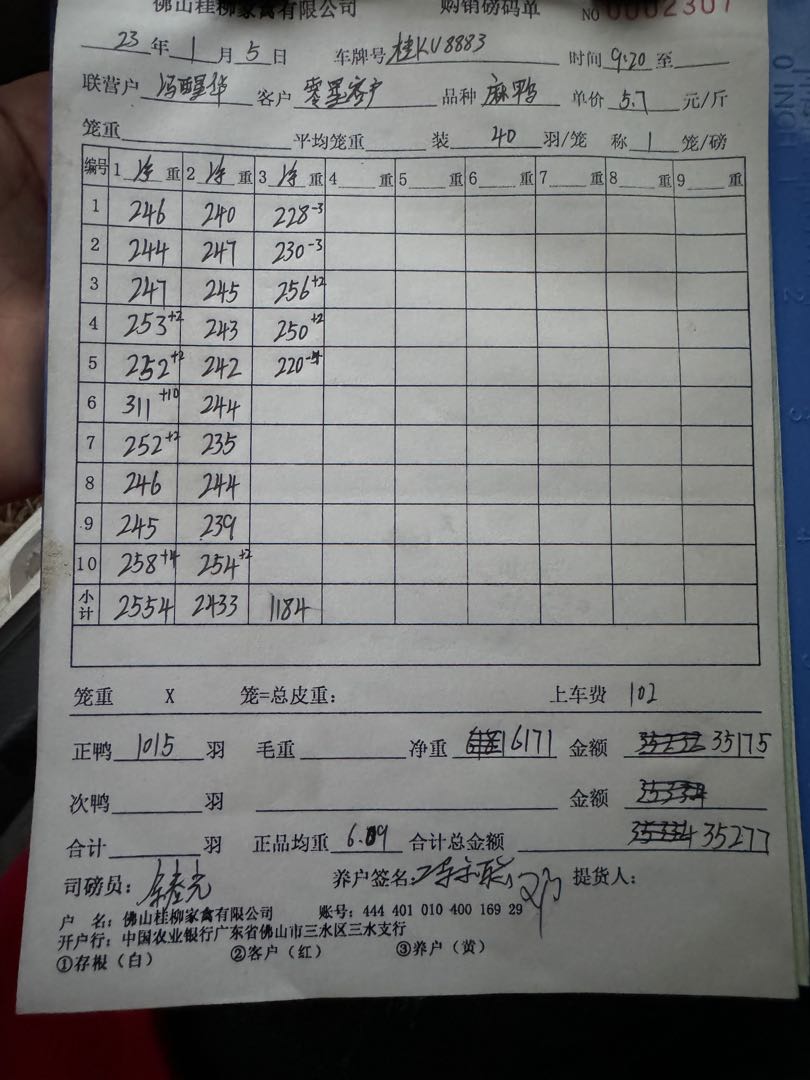 佛山桂柳家禽有限公司 购销磅码单 NO 0002307
23 年 1 月 5 日 车牌号 桂KU8883 时间 9:20 至
联营户 冯醒华 客户 零星客户 品种 麻鸭 单价 5.7 元/斤
笼重 平均笼重 装 40 羽/笼 称 1 笼/磅
编号 1 净 重 2 净 重 3 净 重 4 重 5 重 6 重 7 重 8 重 9 重
1 246 240 228-3
2 244 247 230-3
3 247 245 256+2
4 253+2 243 250+2
5 252+2 242 220-4
6 311+10 244
7 252+2 235
8 246 244
9 245 239
10 258+4 254+2
小计 2554 2433 1184
笼重 X 笼=总皮重: 上车费 102
正鸭 1015 羽 毛重 净重 6171 金额 35232 35175
次鸭 羽 金额 35334
合计 羽 正品均重 6.09 合计总金额 35334 35277
司磅员: 养户签名: 提货人:
户 名: 佛山桂柳家禽有限公司 账号: 444 401 010 400 169 29
开户行: 中国农业银行广东省佛山市三水区三水支行
①存根(白) ②客户(红) ③养户(黄)